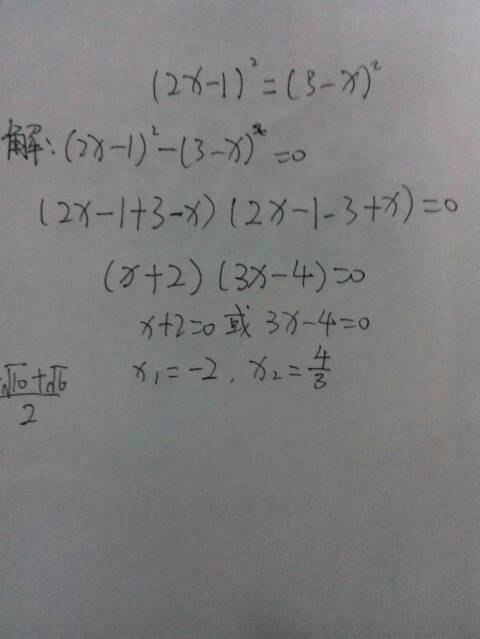 (2x-1)²=(3-x)²
解:(2x-1)²-(3-x)²=0
(2x-1+3-x)(2x-1-3+x)=0
(x+2)(3x-4)=0
x+2=0或 3x-4=0
x₁=-2, x₂=4/3
√10+√6/2